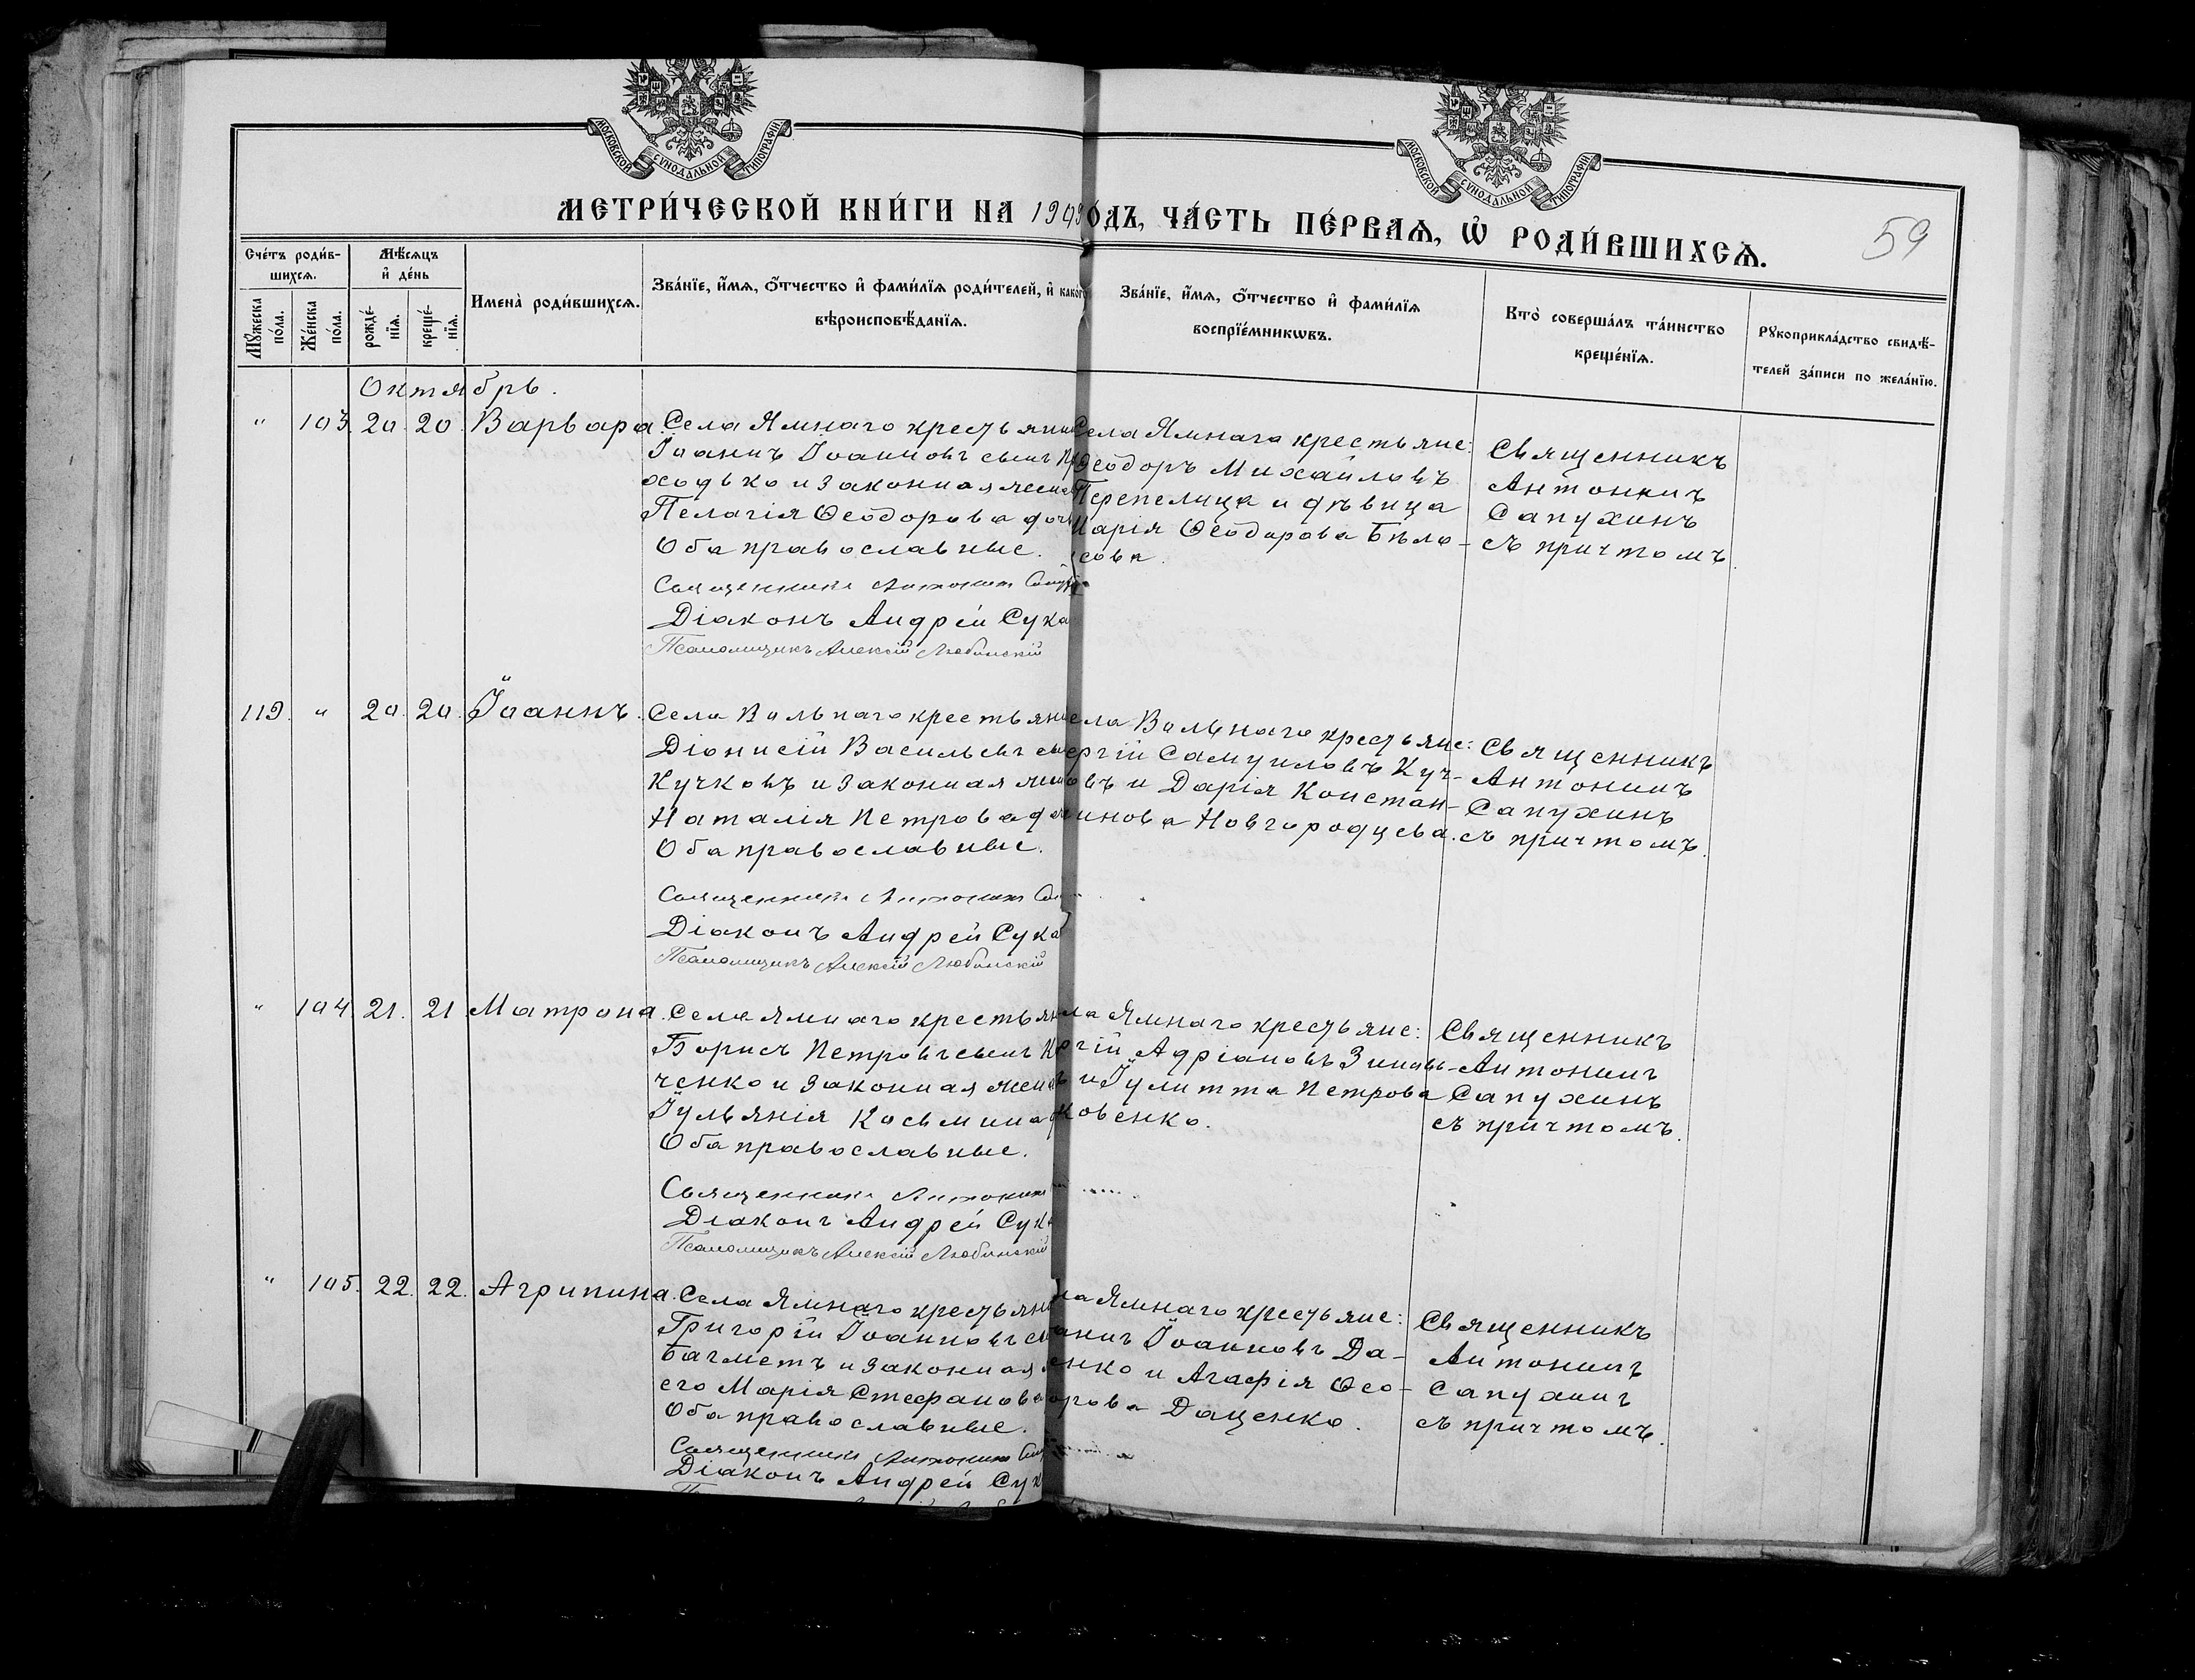 МОСКОВСКОЙ СѴНОДАЛЬНОЙ ТИПОГРАФІИ
МОСКОВСКОЙ СѴНОДАЛЬНОЙ ТИПОГРАФІИ
МЕТРИ́ЧЕСКОЙ КНИ́ГИ НА ОДЪ, ЧА́СТЬ ПЕ́РВАѦ, Ѡ҆ РОДИ́ВШИХСѦ.
59
Сче́тъ роди́в-
шихсѧ.
Мѹжеска по́ла.
Же́нска по́ла.
Мѣ́сѧцъ
и҆ де́нь
рожде́-
нїѧ.
креще́-
нїѧ.
Имена̀ роди́вшихсѧ.
Зва́нїе, и҆́мѧ, ѻ҆́тчество и҆ фами́лїѧ роди́телей, и҆ какого
вѣроисповѣ́данїѧ.
Зва́нїе, и҆́мѧ, ѻ҆́тчество и҆ фами́лїѧ
воспрїе́мникѡвъ.
Кто̀ соверша́лъ та́инство
креще́нїѧ.
Рѹкоприкла́дство свидѣ́-
телей за́писи по жела́нїю.
Октябрь.
" 103. 20. 20. Варвара.
Села Ямнаго крестьянин
Іоаннъ Іоанновъ сынъ
ходько и законная жена
Пелагія Ѳеодорова доч
Оба православные.
Священникъ Антонин
Діаконъ Андрей Сука
Псаломщикъ Алексій Любинскій
Села Ямнаго крестьяне:
Ѳеодоръ Михайловъ
Перепелица и дѣвица
Марія Ѳеодорова Бѣло-
усова.
Священникъ
Антонинъ
Сапухинъ
съ причтомъ.
119. " 20. 20. Іоаннъ.
Села Вольнаго крестьянин
Діонисій Васильевъ сы
Кучковъ и законная жен
Наталія Петрова до
Оба православные.
Священникъ Антонин
Діаконъ Андрей Сука
Псаломщикъ Алексій Любинскій
ела Вольнаго крестьяне:
ергій Самуиловъ Куч-
овъ и Дарія Констан-
инова Новгородцева.
Священникъ
Антонинъ
Сапухинъ
съ причтомъ.
" 104. 21. 21 Матрона.
Села Ямнаго крестьян
Борисъ Петровъ сынъ
ченко и законная жена
Іульянія Косьмина
Оба православные.
Священникъ Антонин
Діаконъ Андрей Сук
Псаломщикъ Алексій Любинскій
ла Ямнаго крестьяне:
ргій Адріановъ Зиновь-
въ и Іулитта Петрова
ковенко.
Священникъ
Антонинъ
Сапухинъ
съ причтомъ.
" 105. 22. 22. Агрипина.
Села Ямнаго крестьяни
Григорій Іоанновъ сы
Багметъ и законная
его Марія Стефанова
Оба православные.
Священникъ Антонинъ
Діаконъ Андрей Сук
ла Ямнаго крестьяне:
аннъ Іоанновъ Да-
енко и Агафія Ѳео-
орова Даценко.
Священникъ
Антонинъ
Сапухинъ
съ причтомъ.